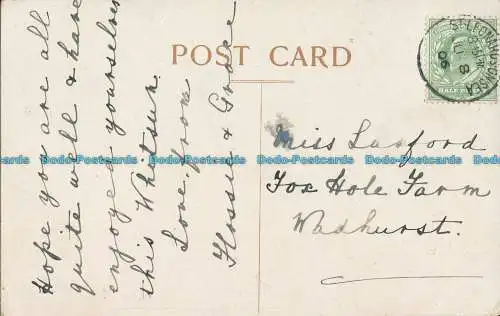 POST CARD
Hope you are all
quite well & have
enjoyed yourselves
this Whitsun.
Love from
Flossie & Grace
Miss Luxford
Fox Hole Farm
Wadhurst.
HALF PENNY
Dodo-Postcards Dodo-Postcards Dodo-Postcards Dodo-Postcards Dodo-Postcards Dodo-Postcards